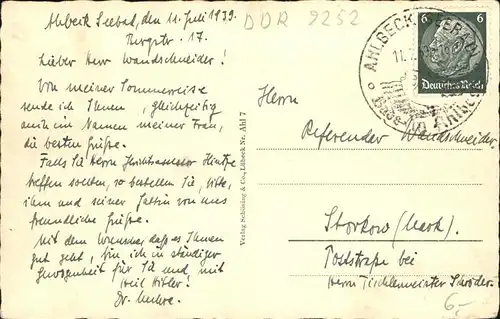 Ahlbeck Seebad, den 11. Juli 1939.
Bergstr. 17.
Lieber Herr Wandschneider!
Von meiner Sommerreise
sende ich Ihnen, gleichzeitig
auch im Namen meiner Frau,
die besten Grüße.
Falls Sie Herrn Hintze
treffen sollten, so bestellen Sie, bitte,
ihm und seiner Gattin von uns
freundliche Grüße.
Mit dem Wunsche, daß es Ihnen
gut geht, bin ich in ständiger
für Sie und, mit
Heil Hitler!
Dr.
DDR 9252
AHLBECK
11.7.
6 6
Deutsches Reich
Verlag Schöning & Co., Lübeck Nr. Ahl 7
Herrn
Referendar Wandschneider
Storkow (Mark).
Poststraße bei
Herrn Tischlermeister Schröder.
6,-